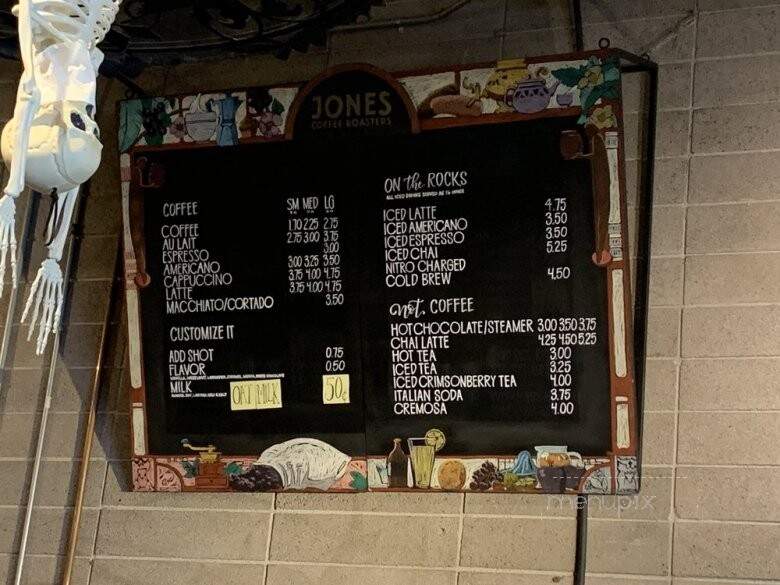 JONES
COFFEE ROASTERS
COFFEE SM MED LG
COFFEE 1.70 2.25 2.75
AU LAIT 2.75 3.00 3.75
ESPRESSO 3.00
AMERICANO 3.00 3.25 3.50
CAPPUCCINO 3.75 4.00 4.75
LATTE 3.75 4.00 4.75
MACCHIATO/CORTADO 3.50
CUSTOMIZE IT
ADD SHOT 0.75
FLAVOR 0.50
MILK OAT MILK 50¢
ON the ROCKS
ALL ICED DRINKS SERVED AS 16 OUNCE
ICED LATTE 4.75
ICED AMERICANO 3.50
ICED ESPRESSO 3.50
ICED CHAI 5.25
NITRO CHARGED
COLD BREW 4.50
not COFFEE
HOT CHOCOLATE/STEAMER 3.00 3.50 3.75
CHAI LATTE 4.25 4.50 5.25
HOT TEA 3.00
ICED TEA 3.25
ICED CRIMSONBERRY TEA 4.00
ITALIAN SODA 3.75
CREMOSA 4.00
menupix